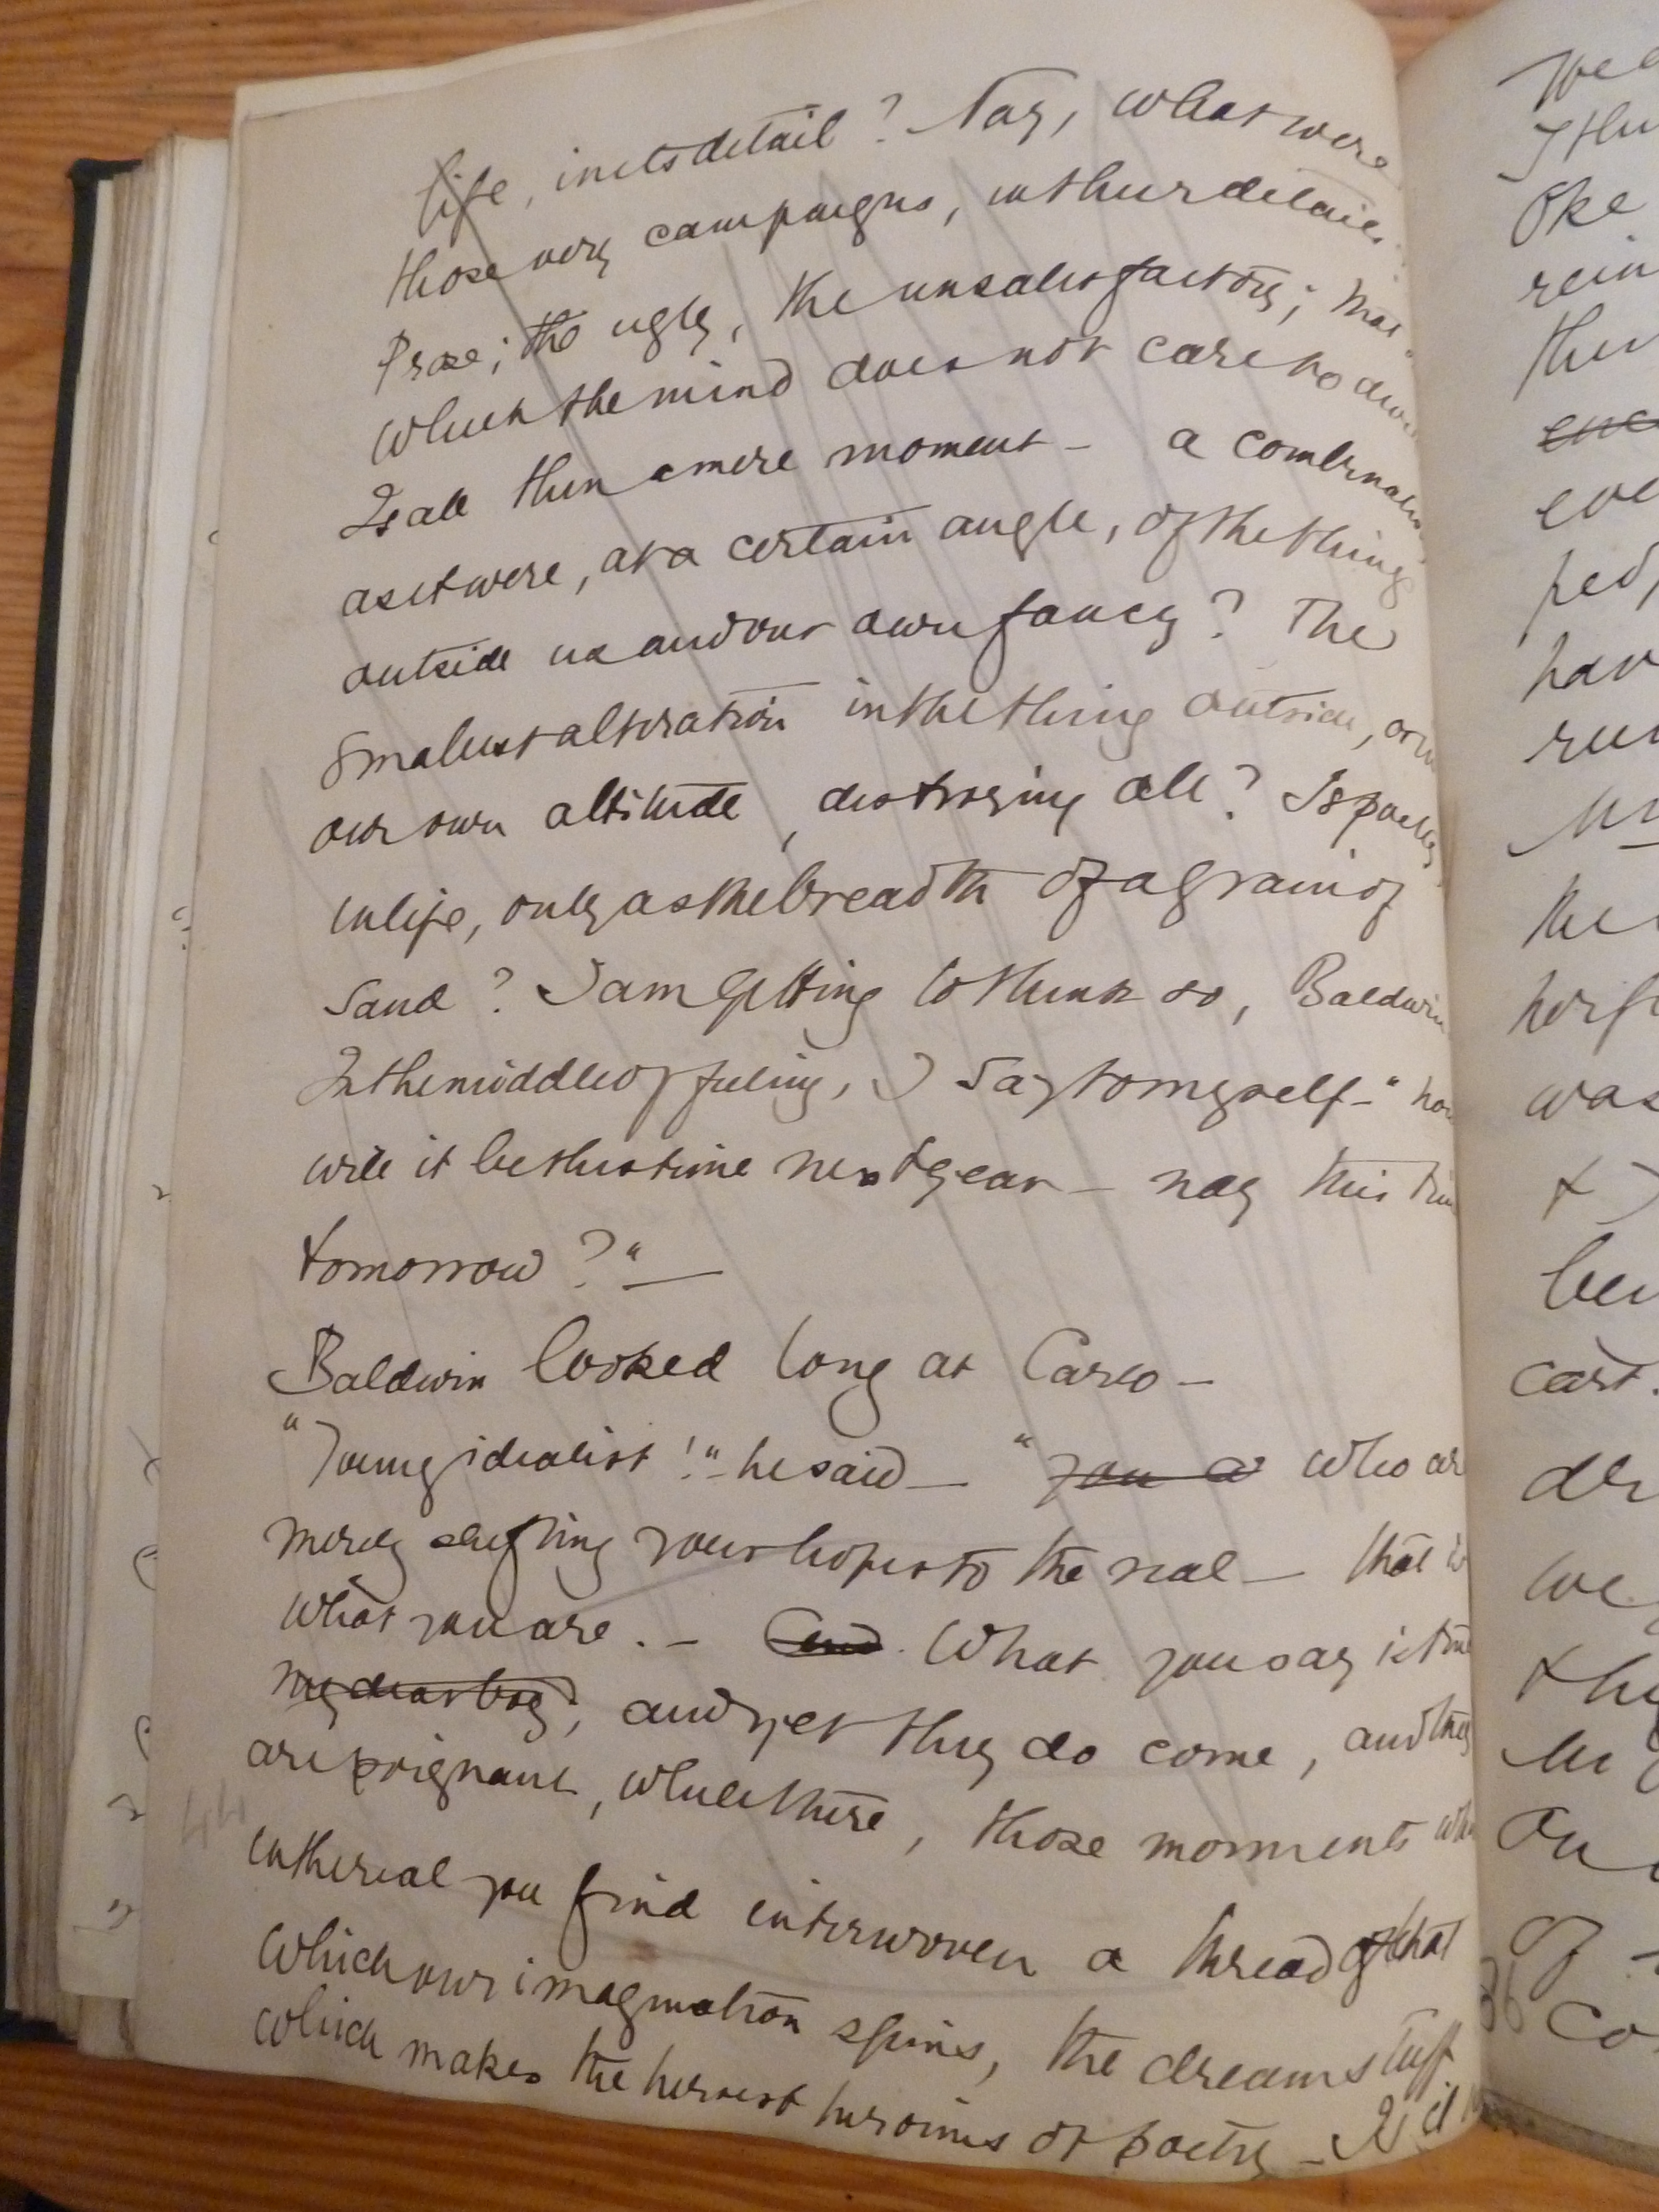 life, in its detail? Nay, what were
those very campaigns, in their detail.
Prose; the ugly, the unsatisfactory; that
which the mind does not care to
Is all then a mere moment – a combination
as it were, at a certain angle, of the thing
outside us and our own fancy? The
smallest alteration in the thing outside, or in
our own attitude, destroying all? Is poetry
in life, only as the breadth of a grain of
sand? I am getting to think so, Baldwin
In the middle of feeling, I say to myself – "how
will it be this time next year – nay this time
tomorrow?" —
Baldwin looked long at Carlo –
"Young idealist!" – he said — "you a who are
merely shifting your hopes to the real — that is
what you are. – And What you say is true
my dear boy, and yet they do come, and they
are poignant, while there, those moments when
in the real you find interwoven a thread of that
which our imagination spins, the dream stuff
which makes the heroes & heroines of poetry – Is it
44
We
I thu
Oke
rein
then
enc
eve
ped,
hav
run
Mr
the
herse
was
&
bee
cast.
de
we
thi
in
On
of
86
co